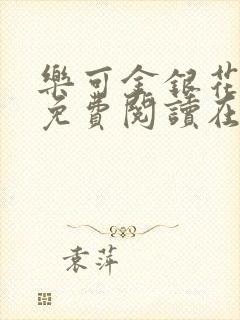 樂可金銀花
免費閱讀在
袁萍